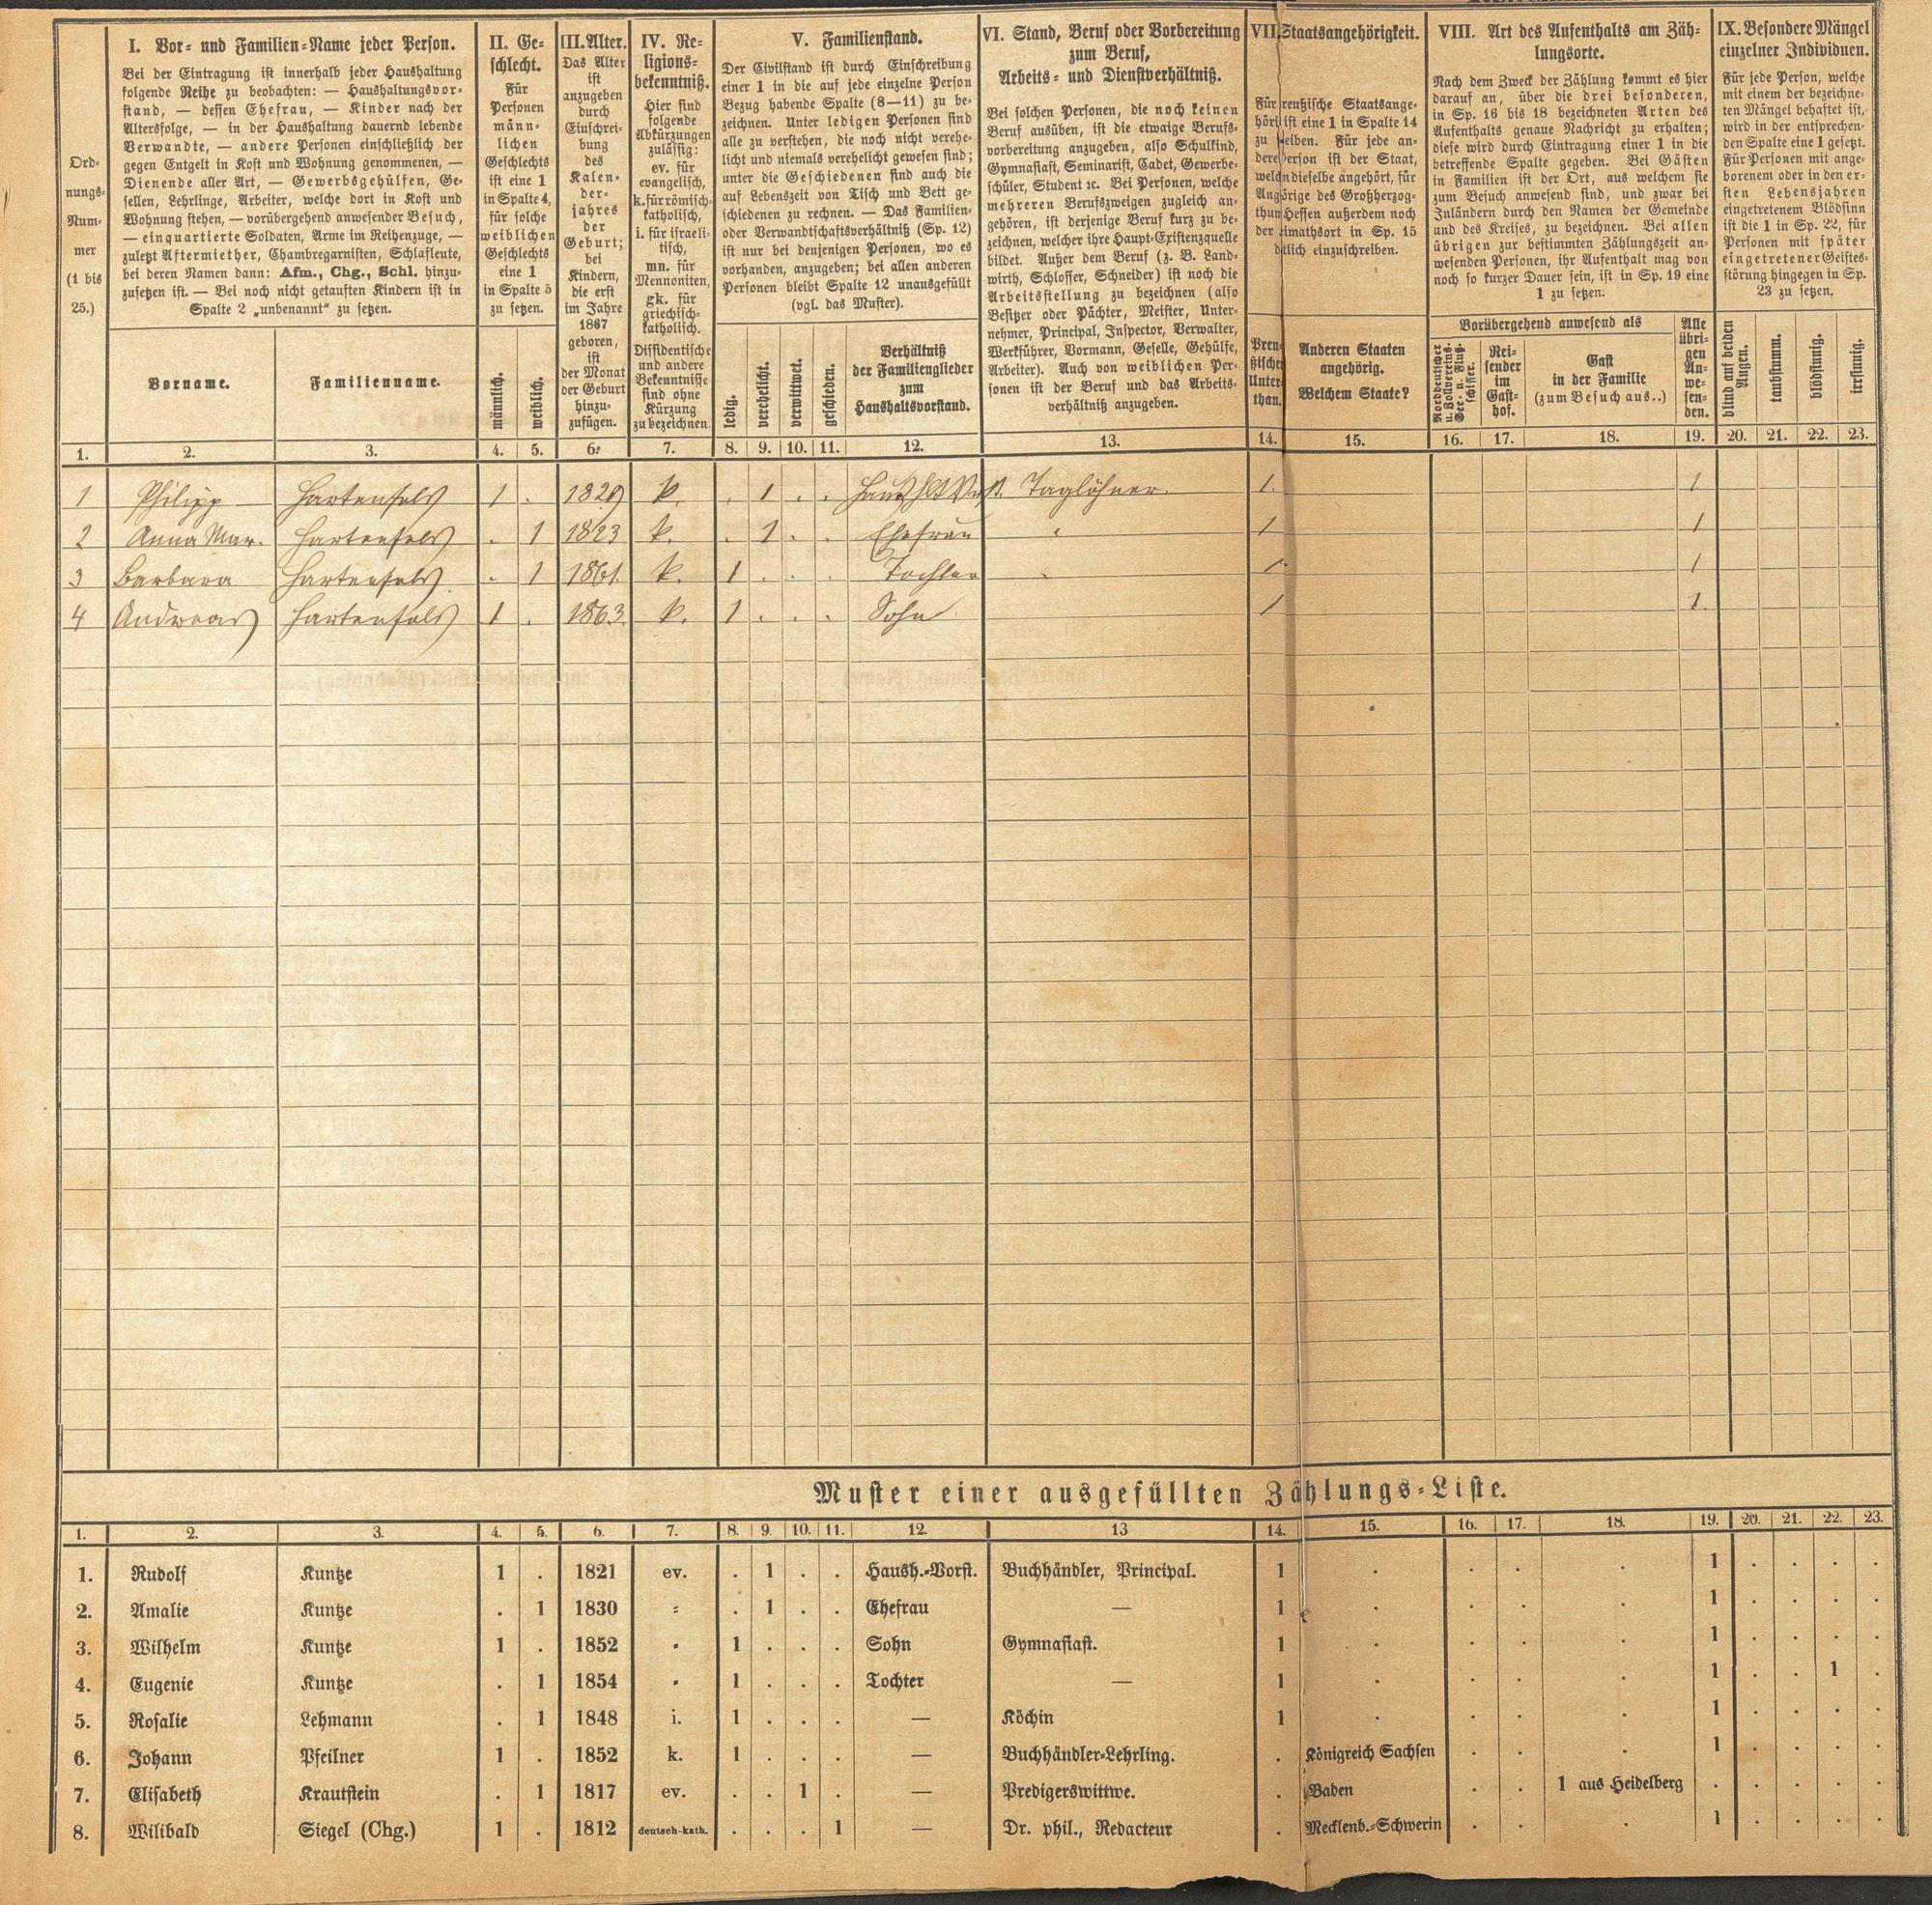 I. Vor- und Familien-Name jeder Person.
Bei der Eintragung ist innerhalb jeder Haushaltung
folgende Reihe zu beobachten: — Haushaltungsvor-
stand, — dessen Ehefrau, — Kinder nach der
Altersfolge, — in der Haushaltung dauernd lebende
Verwandte, — andere Personen einschließlich der
gegen Entgelt in Kost und Wohnung genommenen, —
Dienende aller Art, — Gewerbsgehülfen, Ge-
sellen, Lehrlinge, Arbeiter, welche dort in Kost und
Wohnung stehen, — vorübergehend anwesender Besuch,
— einquartierte Soldaten, Arme im Reihenzuge, —
zuletzt Aftermiether, Chambregarnisten, Schlafleute,
bei deren Namen dann: Afm., Chg., Schl. hinzu-
zusetzen ist. — Bei noch nicht getauften Kindern ist in
Spalte 2 „unbenannt“ zu setzen.
Ord-
nungs-
Num-
mer
(1 bis
25.)
Vorname.
Familienname.
II. Ge-
schlecht.
Für
Personen
männ-
lichen
Geschlechts
ist eine 1
in Spalte 4,
für solche
weiblichen
Geschlechts
eine 1
in Spalte 5
zu setzen.
männlich.
weiblich.
III. Alter.
Das Alter
ist
anzugeben
durch
Einschrei-
bung
des
Kalen-
der-
jahres
der
Geburt;
bei
Kindern,
die erst
im Jahre
1867
geboren,
ist
der Monat
der Geburt
hinzu-
zufügen.
IV. Re-
ligions-
bekenntniß.
Hier sind
folgende
Abkürzungen
zulässig:
ev. für
evangelisch,
k. für römisch-
katholisch,
i. für israeli-
tisch,
mn. für
Mennoniten,
gk. für
griechisch-
katholisch.
Dissidentische
und andere
Bekenntnisse
sind ohne
Kürzung
zu bezeichnen.
V. Familienstand.
Der Civilstand ist durch Einschreibung
einer 1 in die auf jede einzelne Person
Bezug habende Spalte (8—11) zu be-
zeichnen. Unter ledigen Personen sind
alle zu verstehen, die noch nicht verehe-
licht und niemals verehelicht gewesen sind;
unter die Geschiedenen sind auch die
auf Lebenszeit von Tisch und Bett ge-
schiedenen zu rechnen. — Das Familien-
oder Verwandtschaftsverhältniß (Sp. 12)
ist nur bei denjenigen Personen, wo es
vorhanden, anzugeben; bei allen anderen
Personen bleibt Spalte 12 unausgefüllt
(vgl. das Muster).
ledig.
verehelicht.
verwittwet.
geschieden.
Verhältniß
der Familienglieder
zum
Haushaltsvorstand.
VI. Stand, Beruf oder Vorbereitung
zum Beruf,
Arbeits- und Dienstverhältniß.
Bei solchen Personen, die noch keinen
Beruf ausüben, ist die etwaige Berufs-
vorbereitung anzugeben, also Schulkind,
Gymnasiast, Seminarist, Cadet, Gewerbe-
schüler, Student ꝛc. Bei Personen, welche
mehreren Berufszweigen zugleich an-
gehören, ist derjenige Beruf kurz zu be-
zeichnen, welcher ihre Haupt-Existenzquelle
bildet. Außer dem Beruf (z. B. Land-
wirth, Schlosser, Schneider) ist noch die
Arbeitsstellung zu bezeichnen (also
Besitzer oder Pächter, Meister, Unter-
nehmer, Principal, Inspector, Verwalter,
Werkführer, Vormann, Geselle, Gehülfe,
Arbeiter). Auch von weiblichen Per-
sonen ist der Beruf und das Arbeits-
verhältniß anzugeben.
VII. Staatsangehörigkeit.
Für reußische Staatsange-
höri ist eine 1 in Spalte 14
zu eiben. Für jede an-
dere erson ist der Staat,
welch dieselbe angehört, für
Ang örige des Großherzog-
thum Hessen außerdem noch
der eimathsort in Sp. 15
tlich einzuschreiben.
Preu-
ßischer
Unter-
than.
Anderen Staaten
angehörig.
Welchem Staate?
VIII. Art des Aufenthalts am Zäh-
lungsorte.
Nach dem Zweck der Zählung kommt es hier
darauf an, über die drei besonderen,
in Sp. 16 bis 18 bezeichneten Arten des
Aufenthalts genaue Nachricht zu erhalten;
diese wird durch Eintragung einer 1 in die
betreffende Spalte gegeben. Bei Gästen
in Familien ist der Ort, aus welchem sie
zum Besuch anwesend sind, und zwar bei
Inländern durch den Namen der Gemeinde
und des Kreises, zu bezeichnen. Bei allen
übrigen zur bestimmten Zählungszeit an-
wesenden Personen, ihr Aufenthalt mag von
noch so kurzer Dauer sein, ist in Sp. 19 eine
1 zu setzen.
Vorübergehend anwesend als
Norddeutscher
u. Zollvereins-
See- u. Fluß-
schiffer.
Rei-
sender
im
Gast-
hof.
Gast
in der Familie
(zum Besuch aus..)
Alle
übri-
gen
An-
we-
sen-
den.
IX. Besondere Mängel
einzelner Individuen.
Für jede Person, welche
mit einem der bezeichne-
ten Mängel behaftet ist,
wird in der entsprechen-
den Spalte eine 1 gesetzt.
Für Personen mit ange-
borenem oder in den er-
sten Lebensjahren
eingetretenem Blödsinn
ist die 1 in Sp. 22, für
Personen mit später
eingetretener Geistes-
störung hingegen in Sp.
23 zu setzen.
blind auf beiden
Augen.
taubstumm.
blödsinnig.
irrsinnig.
1. 2. 3. 4. 5. 6. 7. 8. 9. 10. 11. 12. 13. 14. 15. 16. 17. 18. 19. 20. 21. 22. 23.
1 Philipp Hartenfels 1 . 1829 k. . 1 . . Taglöhner. 1. 1
2 Anna Mar. Hartenfels . 1 1823 k. . 1 . . Ehefrau " 1 1
3 Barbara Hartenfels . 1 1861. k. 1 . . . Tochter " 1 1
4 Andreas Hartenfels 1 . 1863. k. 1 . . . Sohn 1 1.
Muster einer ausgefüllten Zählungs-Liste.
1. 2. 3. 4. 5. 6. 7. 8. 9. 10. 11. 12. 13 14. 15. 16. 17. 18. 19. 20. 21. 22. 23.
1. Rudolf Kuntze 1 . 1821 ev. . 1 . . Haush.-Vorst. Buchhändler, Principal. 1 . . . . 1 . . . .
2. Amalie Kuntze . 1 1830 " . 1 . . Ehefrau — 1 . . . . 1 . . . .
3. Wilhelm Kuntze 1 . 1852 " 1 . . . Sohn Gymnasiast. 1 . . . . 1 . . . .
4. Eugenie Kuntze . 1 1854 " 1 . . . Tochter — 1 . . . . 1 . . 1 .
5. Rosalie Lehmann . 1 1848 i. 1 . . . — Köchin 1 . . . . 1 . . . .
6. Johann Pfeilner 1 . 1852 k. 1 . . . — Buchhändler-Lehrling. . Königreich Sachsen . . . 1 . . . .
7. Elisabeth Krautstein . 1 1817 ev. . . 1 . — Predigerswittwe. . Baden . . 1 aus Heidelberg . . . . .
8. Wilibald Siegel (Chg.) 1 . 1812 deutsch-kath. . . . 1 — Dr. phil., Redacteur . Mecklenb.-Schwerin . . . 1 . . . .